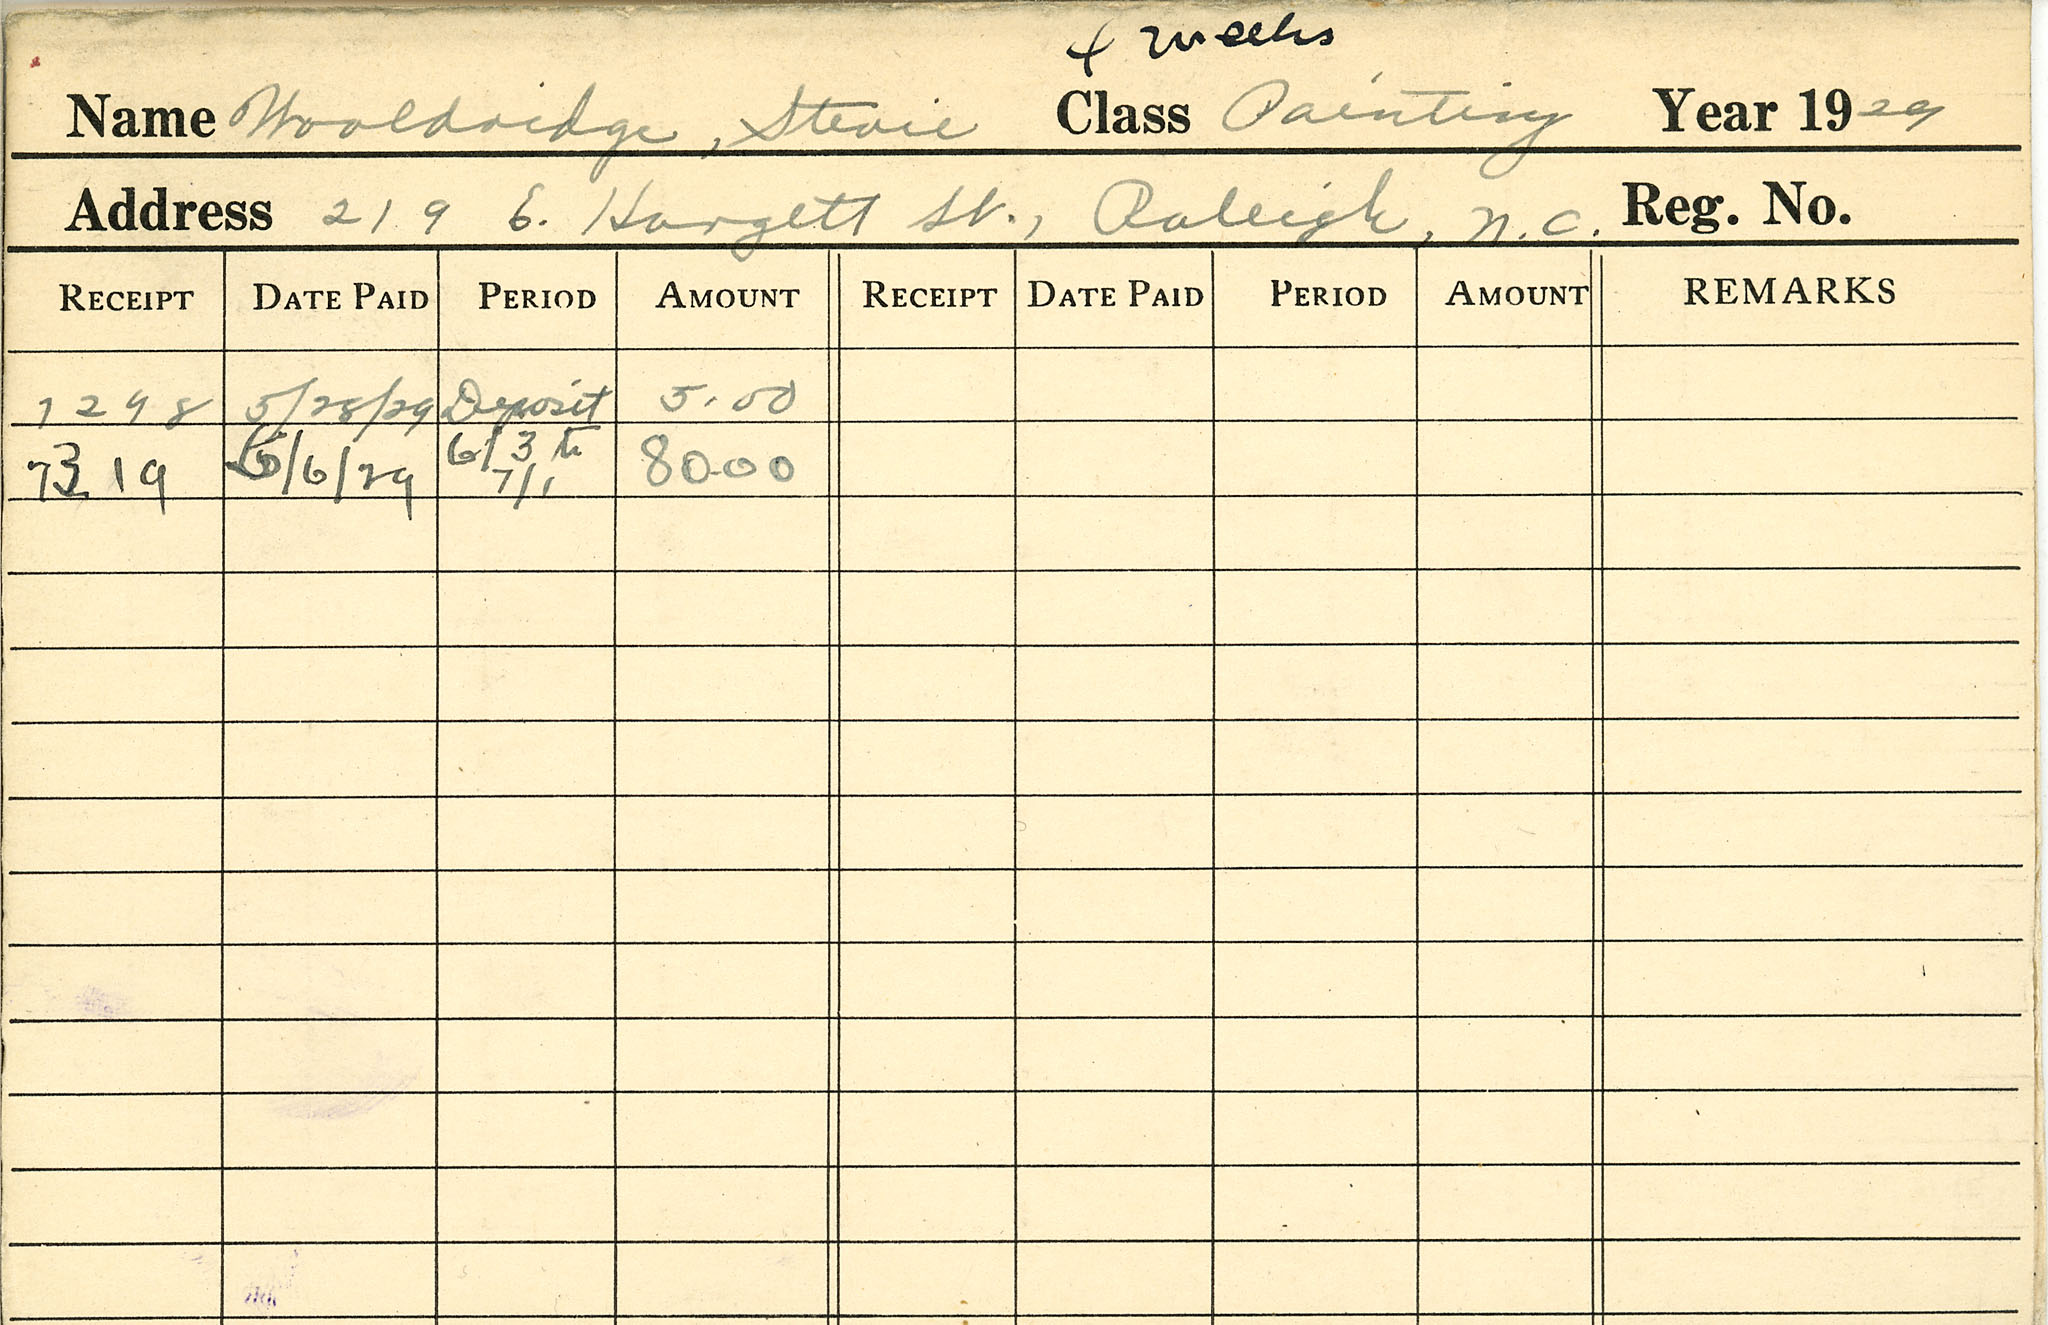 4 weeks
Name Wooldridge, Stevie Class Painting Year 1929
Address 219 E. Hargett St., Raleigh, N.C. Reg. No.
RECEIPT DATE PAID PERIOD AMOUNT RECEIPT DATE PAID PERIOD AMOUNT REMARKS
7298 5/28/29 Deposit 5.00
7319 6/6/29 6/3 to 7/1 80.00